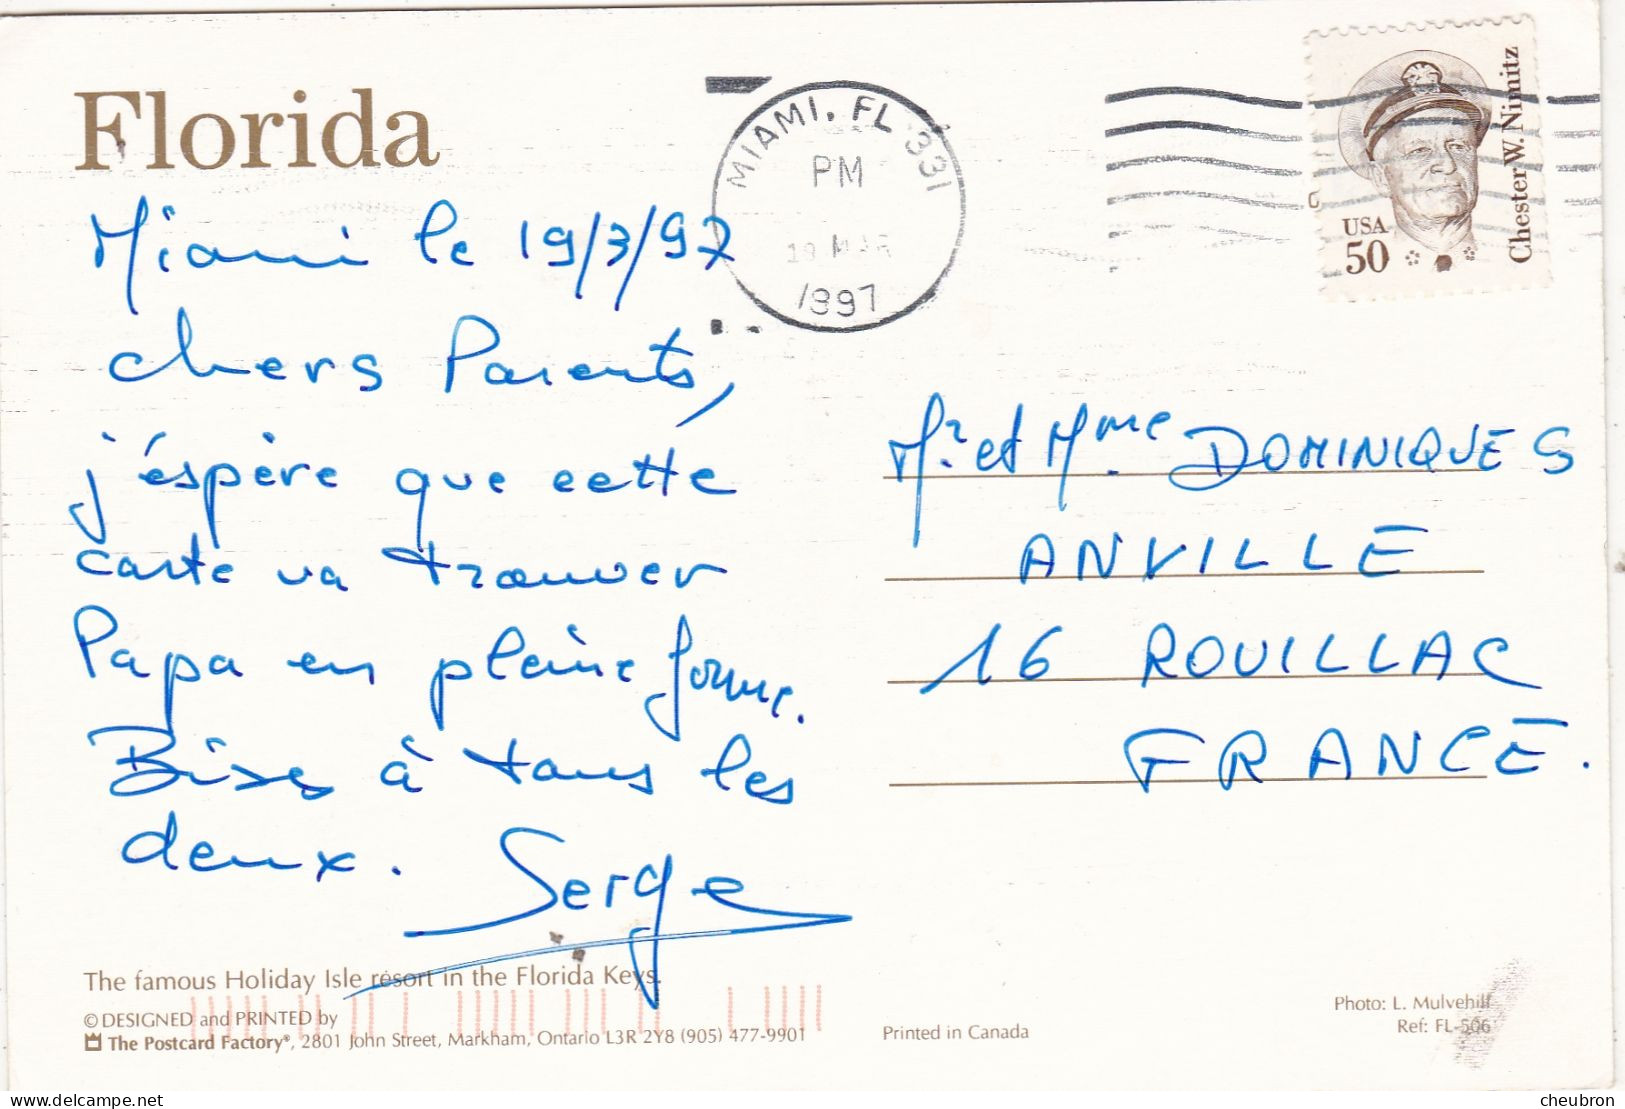 Florida
MIAMI, FL 331
PM
19 MAR
1997
USA
50
Chester W. Nimitz
Miami le 19/3/97
chers Parents,
j'éspère que cette
carte va trouver
Papa en pleine forme.
Bises à tous les
deux.
Serge
Mr et Mme DOMINIQUES
ANVILLE
16 ROUILLAC
FRANCE.
The famous Holiday Isle resort in the Florida Keys.
© DESIGNED and PRINTED by
The Postcard Factory®, 2801 John Street, Markham, Ontario L3R 2Y8 (905) 477-9901
Printed in Canada
Photo: L. Mulvehill
Ref: FL-506
delcampe.net
cheubron